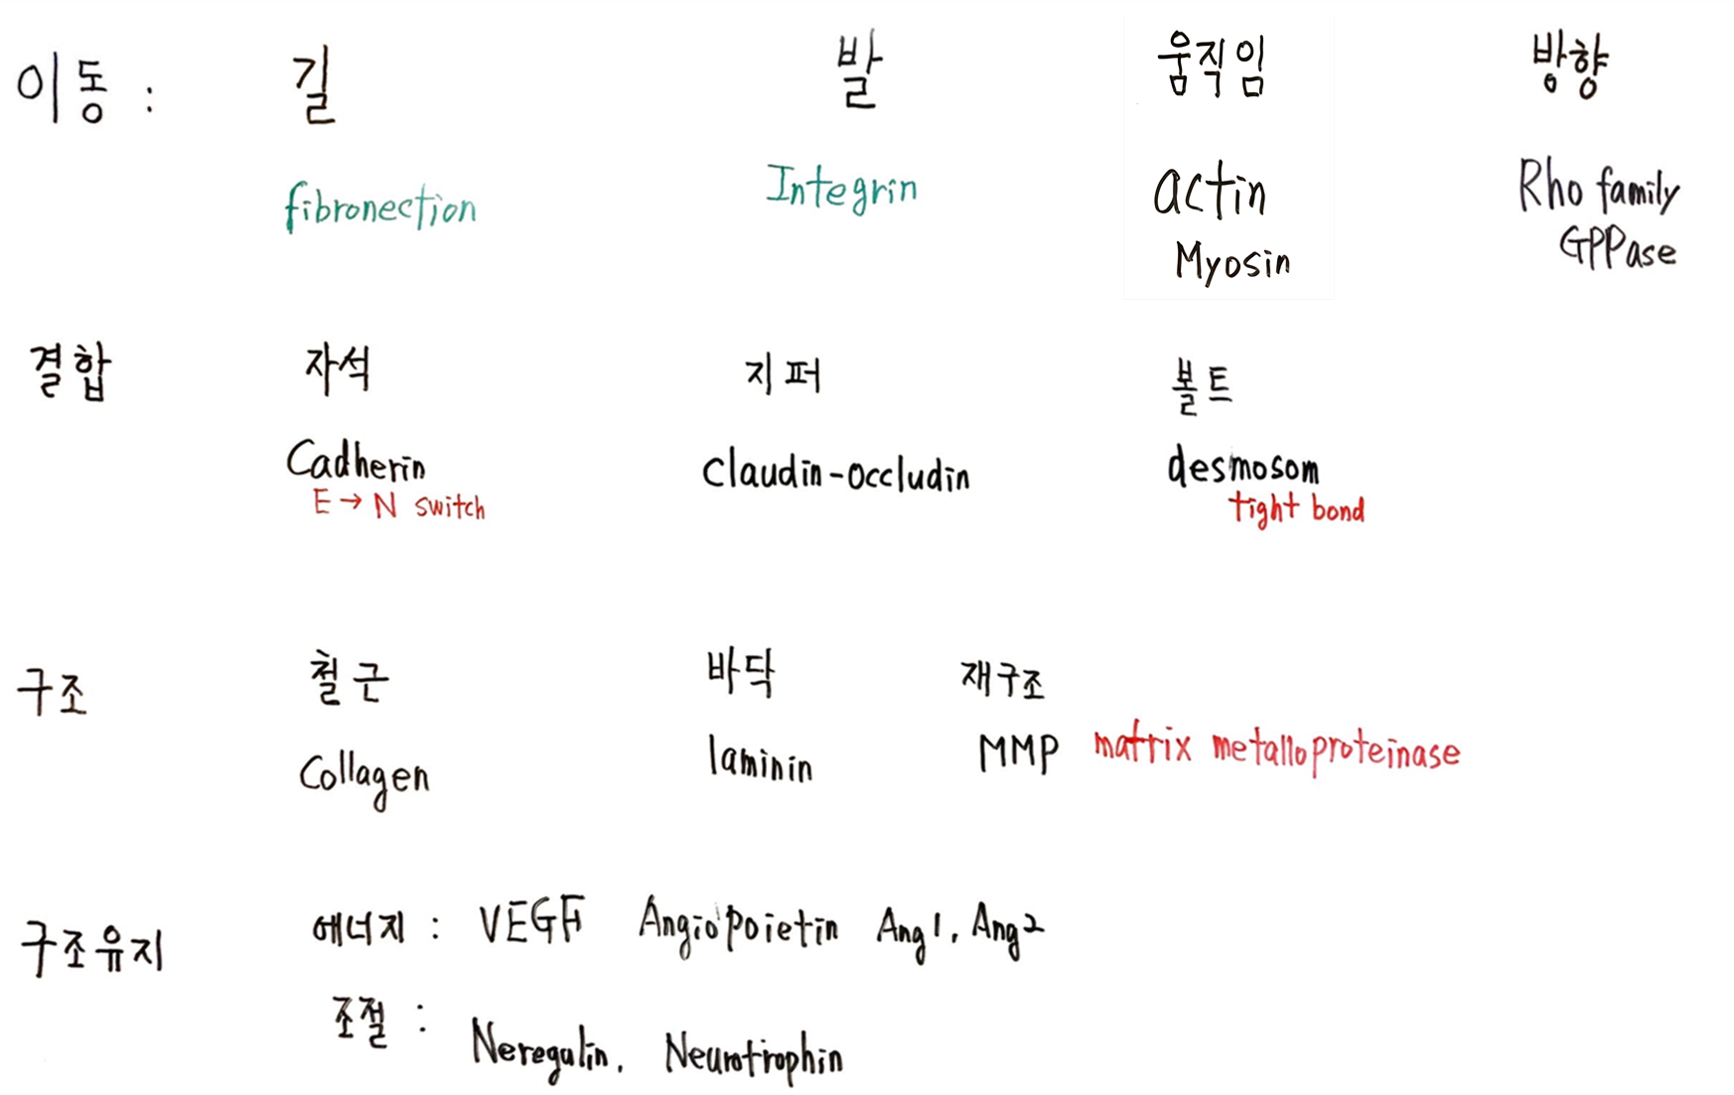 이동 : 길 발 움직임 방향
fibronection Integrin actin Rho family
Myosin GPPase
결합 자석 지퍼 볼트
Cadherin Claudin-Occludin desmosom
E → N switch tight bond
구조 철근 바닥 재구조
Collagen laminin MMP matrix metalloproteinase
구조유지 에너지 : VEGF Angiopoietin Ang1, Ang2
조절 : Neregulin, Neurotrophin